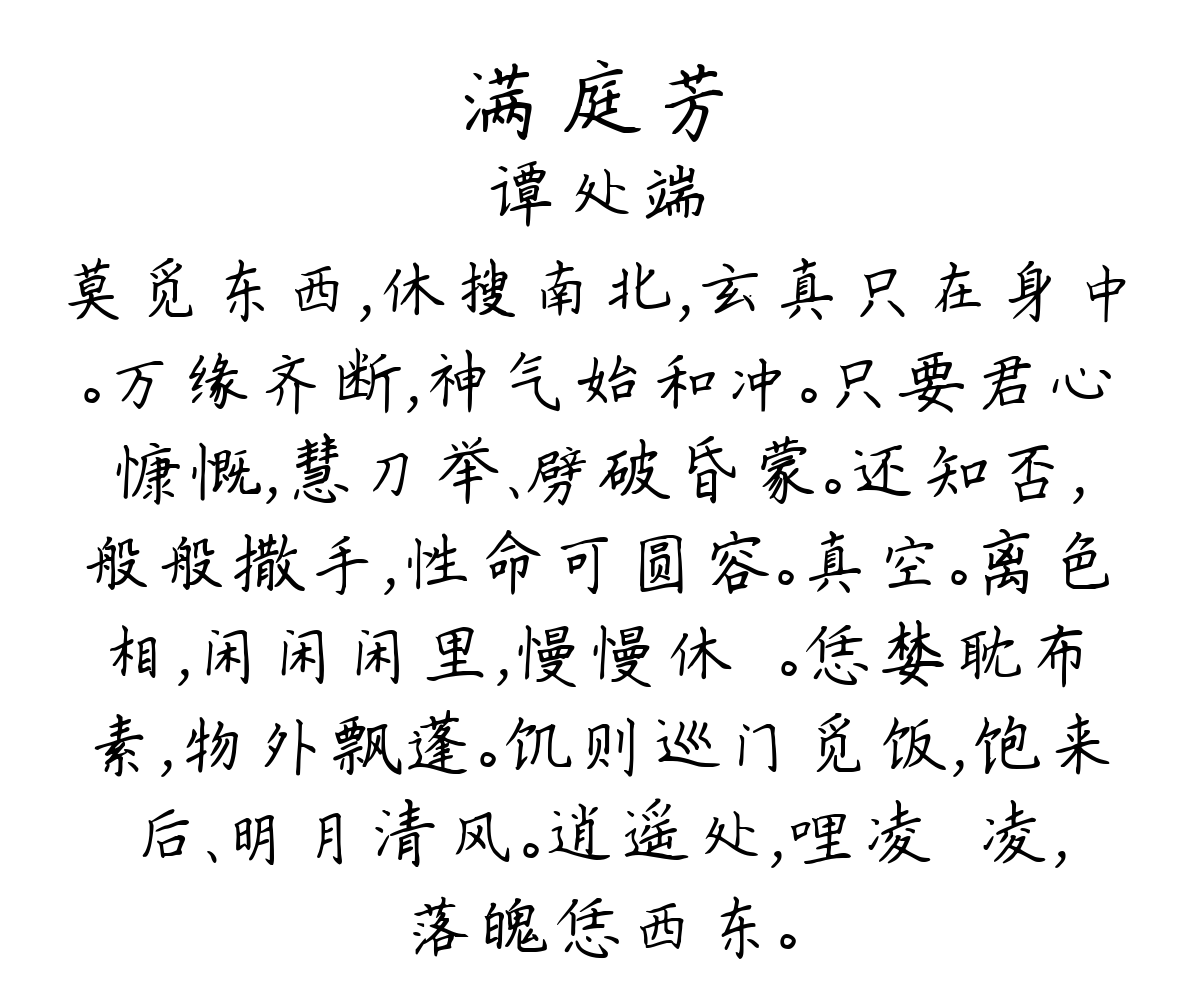 满庭芳
谭处端
莫觅东西,休搜南北,玄真只在身中
。万缘齐断,神气始和冲。只要君心
慷慨,慧刀举、劈破昏蒙。还知否,
般般撒手,性命可圆容。真空。离色
相,闲闲闲里,慢慢休 。恁婪耽布
素,物外飘蓬。饥则巡门觅饭,饱来
后、明月清风。逍遥处,哩凌 凌,
落魄恁西东。